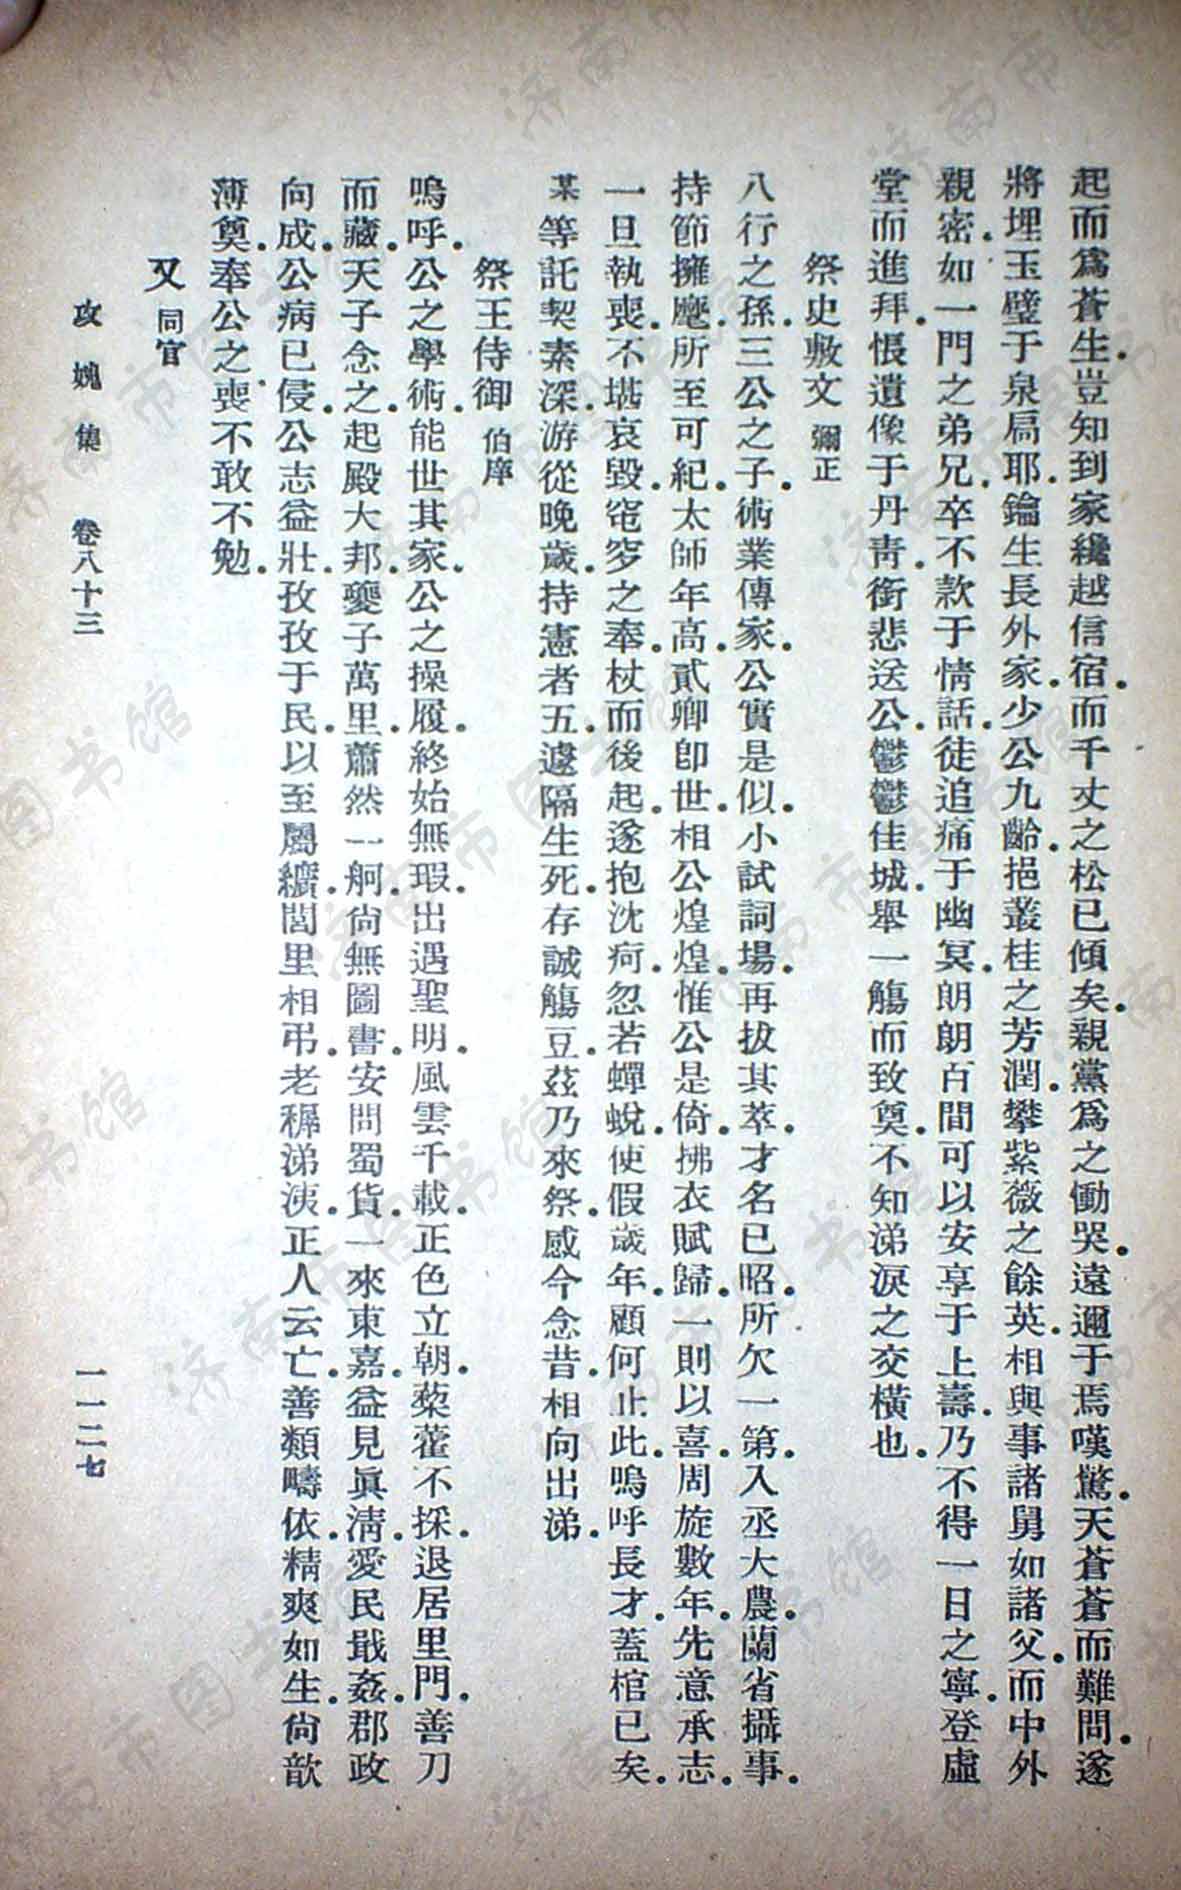 起而爲蒼生。豈知到家纔越信宿。而千丈之松已傾矣。親黨爲之慟哭。遠邇于焉嘆驚。天蒼蒼而難問。遂
將埋玉璧于泉扃耶。鑰生長外家。少公九齡。挹叢桂之芳潤。攀紫薇之餘英。相與事諸舅如諸父。而中外
親密。如一門之弟兄。卒不款于情話。徒追痛于幽冥。朗朗百間。可以安享于上壽。乃不得一日之寧。登虛
堂而進拜。悵遺像于丹靑。銜悲送公。鬱鬱佳城。舉一觴而致奠。不知涕淚之交橫也。
祭史敷文 彌正
八行之孫。三公之子。術業傳家。公實是似。小試詞場。再拔其萃。才名已昭。所欠一第。入丞大農。蘭省攝事。
持節擁麾。所至可紀。太師年高。貳卿卽世。相公煌煌。惟公是倚。拂衣賦歸。一則以喜。周旋數年。先意承志。
一旦執喪。不堪哀毀。窀穸之奉。杖而後起。遂抱沈痾。忽若蟬蛻。使假歲年。顧何止此。嗚呼長才。蓋棺已矣。
某等託契素深。游從晚歲。持憲者五。遽隔生死。存誠觴豆。茲乃來祭。感今念昔。相向出涕。
祭王侍御 伯庠
嗚呼。公之學術。能世其家。公之操履。終始無瑕。出遇聖明。風雲千載。正色立朝。藜藿不採。退居里門。善刀
而藏。天子念之。起殿大邦。夔子萬里。蕭然一舸。尙無圖書。安問蜀貨。一來東嘉。益見眞淸。愛民戢姦。郡政
向成。公病已侵。公志益壯。孜孜于民。以至屬纊。閭里相弔。老穉涕洟。正人云亡。善類疇依。精爽如生。尙歆
薄奠。奉公之喪。不敢不勉。
又 同官
攻媿集 卷八十三 一一二七
济南市图书馆